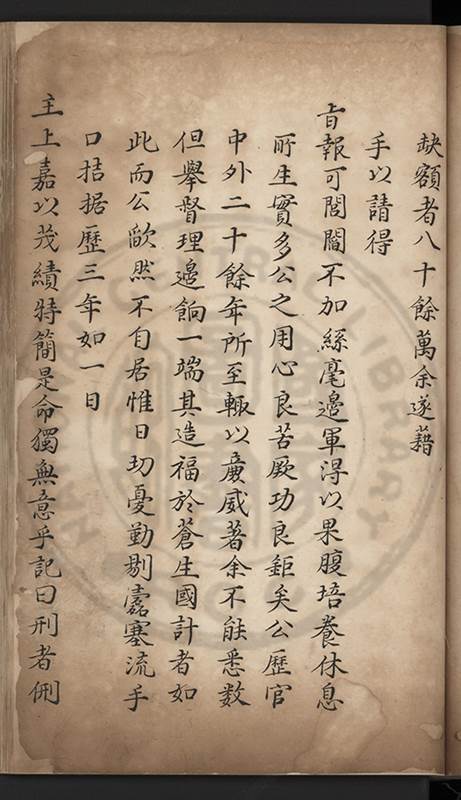 缺額者八十餘萬余遂藉
手以請得
旨報可閭閻不加絲毫邊軍淂以果腹培養休息
所生實多公之用心良苦厥功良鉅矣公歷官
中外二十餘年所至輙以廉威著余不能悉数
但舉督理邊餉一端其造福於蒼生國計者如
此而公欿然不自居惟日切憂勤剔蠹塞流手
口拮据歷三年如一日
主上嘉以茂績特簡是命獨無意乎記曰刑者侀